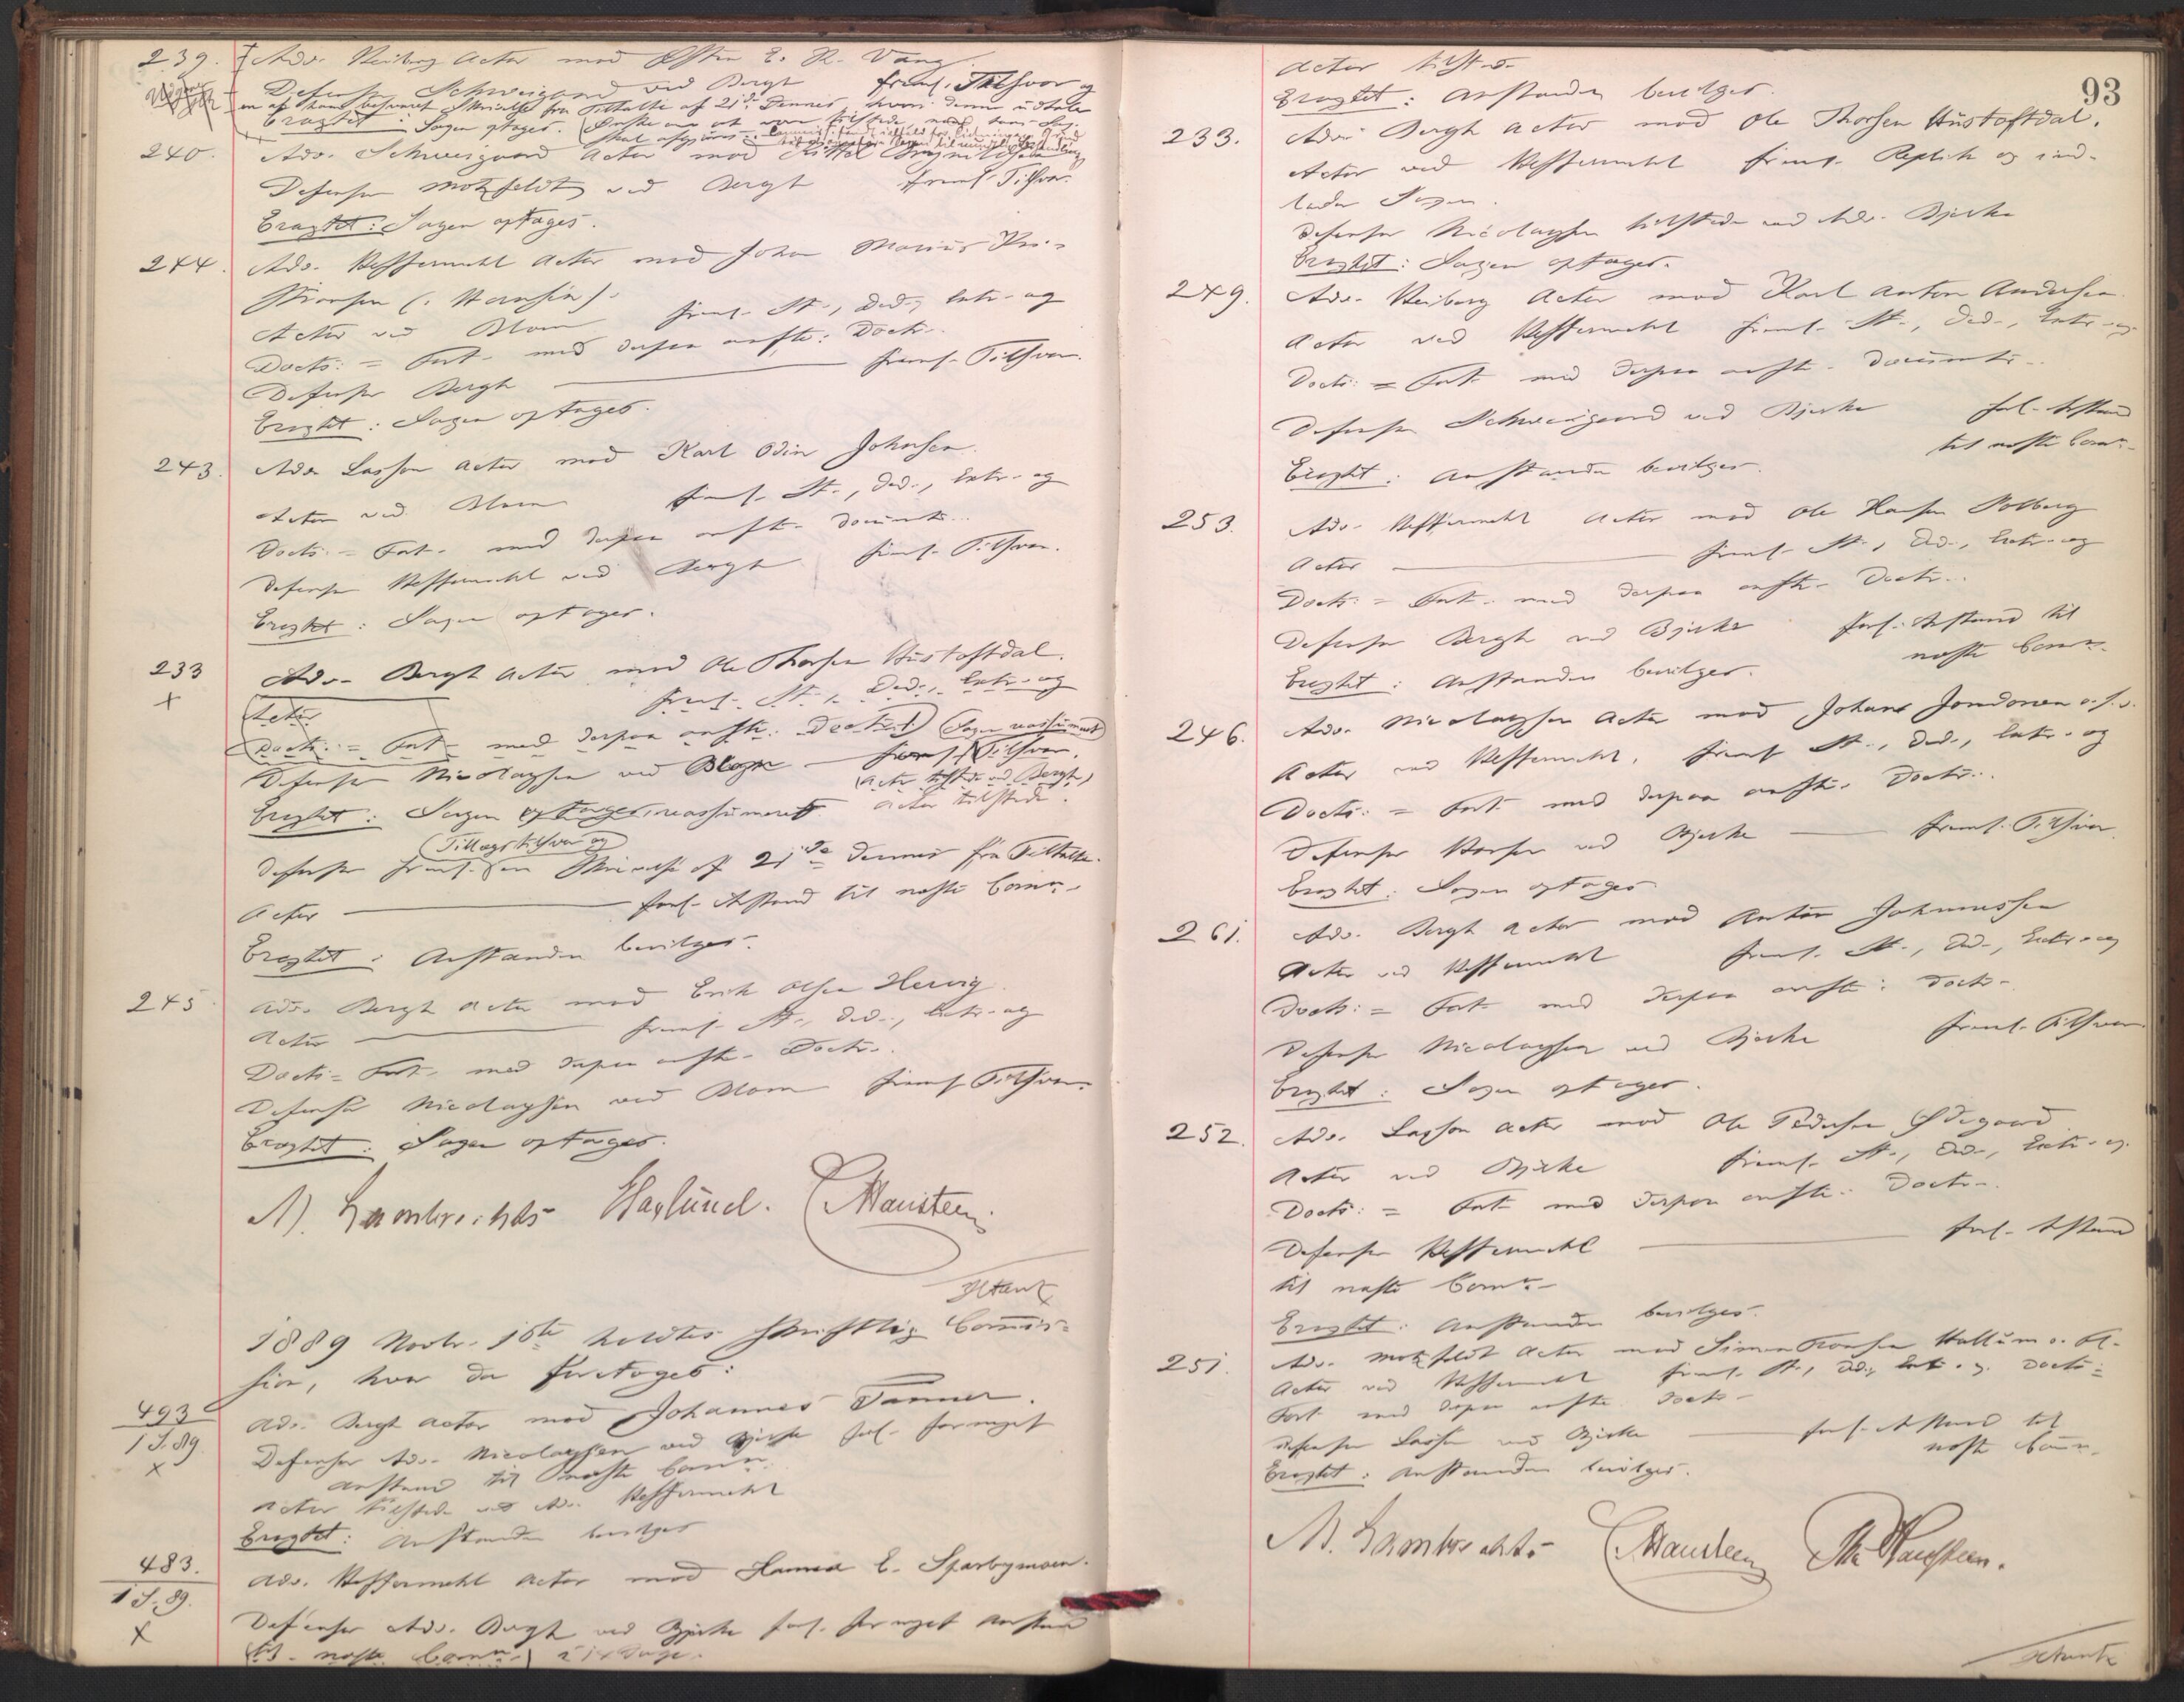 239. Adv. Heiberg Actor mod Østen E. R. Vang.
Defensor Schweigaard ved Bergh freml. Tilsvar og
en af ham besvaret Skrivelse fra Tiltalte af 21de Dennes, hvori denne udtaler
Eragtet: Sagen optages.
240. Adv. Schweigaard Actor mod Kittel
Defensor Motzfeldt ved Bergh freml. Tilsvar.
Eragtet: Sagen optages.
244. Adv. Heffermehl Actor mod Johan Marius
Actor ved Blom freml. St., Ded., Extr. og
Docts: = Fort. med derpaa anfte: Doctr.
Defensor Bergh — freml. Tilsvar.
Eragtet: Sagen optages.
243. Adv. Lasson Actor mod Karl Odin Johnsen.
Actor ved Blom freml. St., Ded., Extr. og
Docts: = Fort. med derpaa anfte. Documtr.
Defensor Heffermehl ved Bergh freml. Tilsvar.
Eragtet: Sagen optages.
233
X
Adv. Bergh Actor mod Ole Thorsen Hustoftdal.
Actor freml. St., Ded., Extr. og
Docts: = Fort. med derpaa anfte. Doctr. (Sagen reassumeret)
Defensor Nicolaysen ved Blom — freml. Tilsvar.
(Actor tilstede ved Bergh)
Eragtet: Sagen optages, reassumeret Actor tilstede.
Tillægstilsvar og
Defensor freml. en Skrivelse af 21de Dennes fra Tiltalte.
Actor — forl. Anstand til næste Comn.
Eragtet: Anstanden bevilges.
245 Adv. Bergh Actor mod Erik Olsen Hervig.
Actor — freml. St., Ded., Extr. og
Docts = Fort. med derpaa anfte. Doctr.
Defensor Nicolaysen ved Blom freml. Tilsvar.
Eragtet: Sagen optages.
M. Lambrechts Haslund. C. Hansteen.
1889 Novbr. 1ste holdtes skriftlig Commis-
sion, hvor da foretoges:
493
1 S. 89.
X
Adv. Bergh Actor mod Johannes Tanner.
Defensor Adv. Nicolaysen ved Bjerke forl. fornyet
Anstand til næste Comn.
Actor tilstede ved Adv. Heffermehl
Eragtet: Anstanden bevilges
483.
1 S. 89.
X
Adv. Heffermehl Actor mod Hanna E. Sparbymoen.
Defensor Adv. Bergh ved Bjerke forl. fornyet Anstand
til næste Comn.
93
Actor tilst.
Eragtet: Anstanden bevilges.
233. Adv. Bergh Actor mod Ole Thorsen Hustoftdal.
Actor ved Heffermehl freml. Replik og ind-
lader Sagen.
Defensor Nicolaysen tilstede ved Adv. Bjerke
Eragtet: Sagen optages.
249. Adv. Heiberg Actor mod Karl Anton Andersen
Actor ved Heffermehl freml. St., Ded., Extr. og
Docts: = Fort. med derpaa anfte. Documtr.
Defensor Schweigaard ved Bjerke forl. Anstand
til næste Comn.
Eragtet: Anstanden bevilges.
253. Adv. Heffermehl Actor mod Ole Hansen Solberg
Actor — freml. St., Ded., Extr. og
Docts: = Fort. med derpaa anfte. Doctr.
Defensor Bergh ved Bjerke forl. Anstand til
næste Comn.
Eragtet: Anstanden bevilges.
246. Adv. Nicolaysen Actor mod Johans
Actor ved Heffermehl, freml. St., Ded., Extr. og
Docts: = Fort. med derpaa anfte. Doctr.
Defensor ved Bjerke — freml. Tilsvar.
Eragtet: Sagen optages.
261. Adv. Bergh Actor mod Anton Johannessen
Actor ved Heffermehl freml. St., Ded., Extr. og
Docts: = Fort. med derpaa anfte: Doctr.
Defensor Nicolaysen ved Bjerke freml. Tilsvar
Eragtet: Sagen optages.
252. Adv. Lasson Actor mod Ole Pedersen Ødegaard
Actor ved Bjerke freml. St., Ded., Extr. og
Docts: = Fort. med derpaa anfte: Doctr.
Defensor Heffermehl — forl. Anstand
til næste Comn.
Eragtet: Anstanden bevilges.
251. Adv. Motzfeldt Actor mod Simen Hallum o. Fl.
Actor ved Heffermehl freml. St., Ded., Extr. og Docts =
Fort. med derpaa anfte. Doctr.
Defensor Lasson ved Bjerke — forl. Anstand til
næste Comn.
Eragtet: Anstanden bevilges.
M. Lambrechts. C. Hansteen Hansteen.